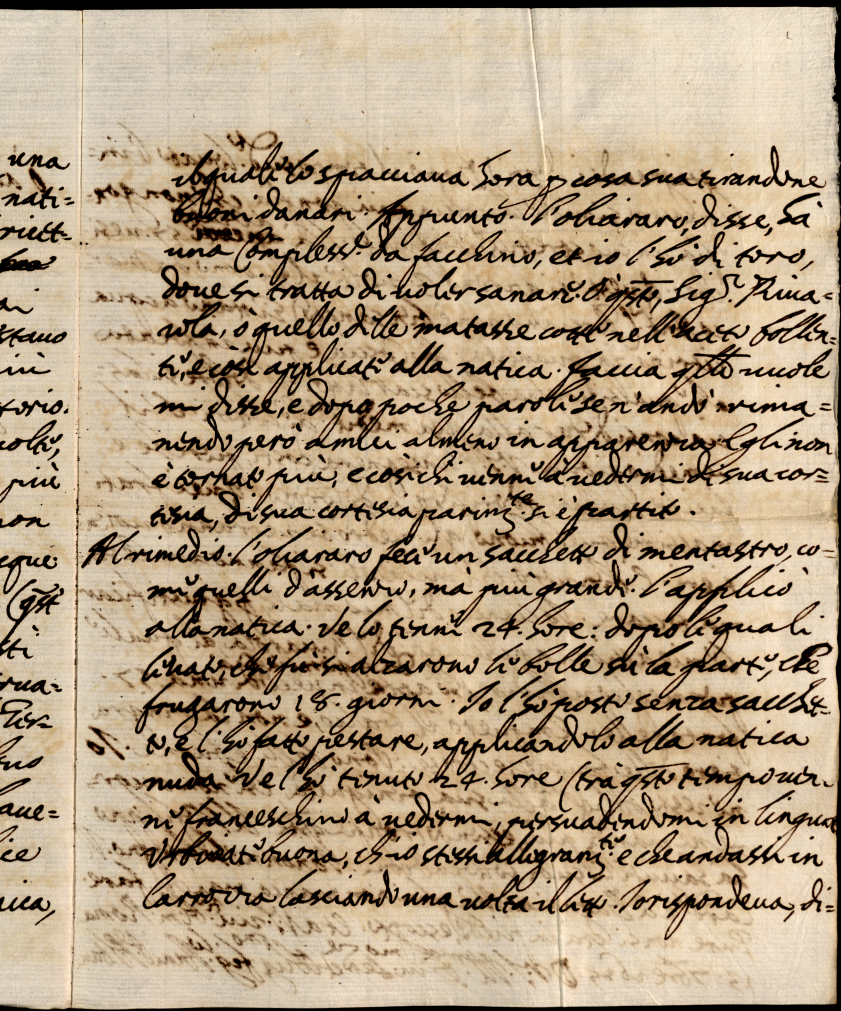 una
nati=
riett=
stauo
torio.
uolte,
più
non
cque
(qsto
sti
rua=
suo
aue=
ice
nica,
il quale lo spacciaua hora p cosa sua tirandone
buoni danari. Appunto. l'oliararo, disse, hà
una Compless.e da facchino, et io l'hò di toro,
doue si tratta di uoler sanare. ò qsto, Sig.r Riua=
rola, ò quello delle matasse cotte nell'aceto bollen=
te, e così applicate alla natica. faccia qllo uuole
mi disse, e dopo poche parole se n'andò rima=
nendo però amici almeno in apparenza. Egli non
è tornato più, e così chi uenne à uedermi di sua cor=
tesia, di sua cortesia parim.te si è partito.
Al rimedio. l'oliararo fece un sacchetto di mentastro, co=
me quelli d'assenzo, mà più grande. l'applicò
alla natica. Ve lo tenne 24. hore: dopo le quali
leuato, che fù si alzarono le bolle sù la parte, che
frugarono 18. giorni. Io l'hò posto senza sacchet=
to, e l'hò fatto pestare, applicandolo alla natica
nuda. Ve l'hò tenuto 24. hore (trà qsto tempo uen=
ne franceschino à uedermi, persuadendomi in lingua
Vrbinate buona, ch'io stessi allegram.te e che andassi in
Carrozza lasciando una uolta il letto. Io rispondeua, di=